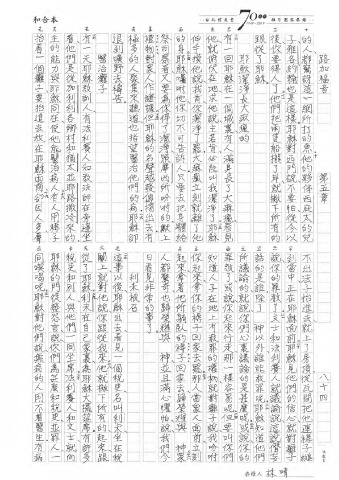 和合本
70
路加福音 第五章 八十四
的人都驚訝這一網所打的魚他的夥伴西庇太的兒
子雅各約翰也是這樣耶穌對西門說不要怕從今以
後你要得人了他們把兩隻船攏了岸就撇下所有的
跟從了耶穌
耶穌潔淨長大痲瘋的
有一回耶穌在一個城裏有人滿身長了大痲瘋看見
他就俯伏在地求他說主若肯必能叫我潔淨了耶穌
伸手摸他說我肯你潔淨了罷大痲瘋立刻就離了他
的身耶穌囑咐他你切不可告訴人只要去把身體給
祭司察看又要為你得了潔淨照摩西所吩咐的獻上
禮物對眾人作證據但耶穌的名聲越發傳揚出去有
極多的人聚集來聽道也指望醫治他們的病耶穌卻
退到曠野去禱告
醫治癱子
有一天耶穌教訓人有法利賽人和教法師在旁邊坐
著他們是從加利利各鄉村和猶太並耶路撒冷來的
主的能力與耶穌同在使他能醫治病人有人用褥子
抬著一個癱子要抬進去放在耶穌面前卻因人多尋
不出法子抬進去就上了房頂從瓦間把他連褥子縋
到當中正在耶穌面前耶穌見他們的信心就對癱子
說你的罪赦了文士和法利賽人就議論說這說僭妄
話的是誰除了 神以外誰能赦罪呢耶穌知道他們
所議論的就說你們心裏議論的是甚麼呢或說你的
罪赦了或說你起來行走那一樣容易呢但要叫你們
知道人子在地上有赦罪的權柄就對癱子說我吩咐
你起來拿你的褥子回家去罷那人當眾人面前立刻
起來拿著他所躺臥的褥子回家去歸榮耀與 神眾
人都驚奇也歸榮耀與 神並且滿心懼怕說我們今
日看見非常的事了
利未被召
這事以後耶穌出去看見一個稅吏名叫利未坐在稅
關上就對他說你跟從我來他就撇下所有的起來跟
從了耶穌利未在自己家裏為耶穌大擺筵席有許多
稅吏和別人與他們一同坐席法利賽人和文士就向
耶穌的門徒發怨言說你們為甚麼和稅吏並罪人一
同喫喝呢耶穌對他們說無病的人用不著醫生有病
林晴